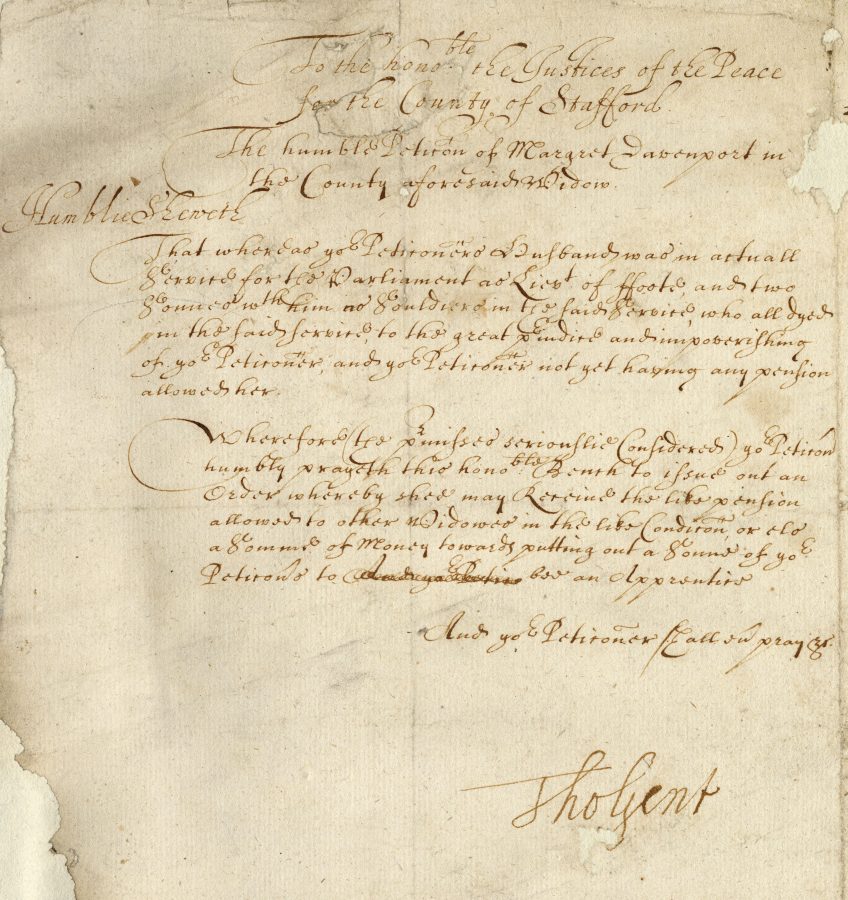 To the hono:ble the Justices of the Peace
for the County of Stafford.
The humble Peticōn of Margret Davenport in
the County aforesaid Widow.
Humblie Sheweth
That whereas yor Peticoners Husband was in actuall
Service for the Parliament as Lievt of ffoote, and two
Sonnes wth him as Souldiers in the said Service, who all dyed
in the said service, to the great p̄iudice and impoverishing
of yor Peticōner, and yor Peticōner not yet having any pension
allowed her.
Wherefore (the p̄misses seriouslie Considered) yor Peticōn
humbly prayeth this hono:ble Bench to issue out an
Order whereby shee may Receive the like pension
allowed to other Widowes in the like Condicōn, or els
a Somme of Money towards putting out a Sonne of yor
Peticōns to bee an Apprentice
And yor Peticōner shall eū pray &c.
Tho Gent